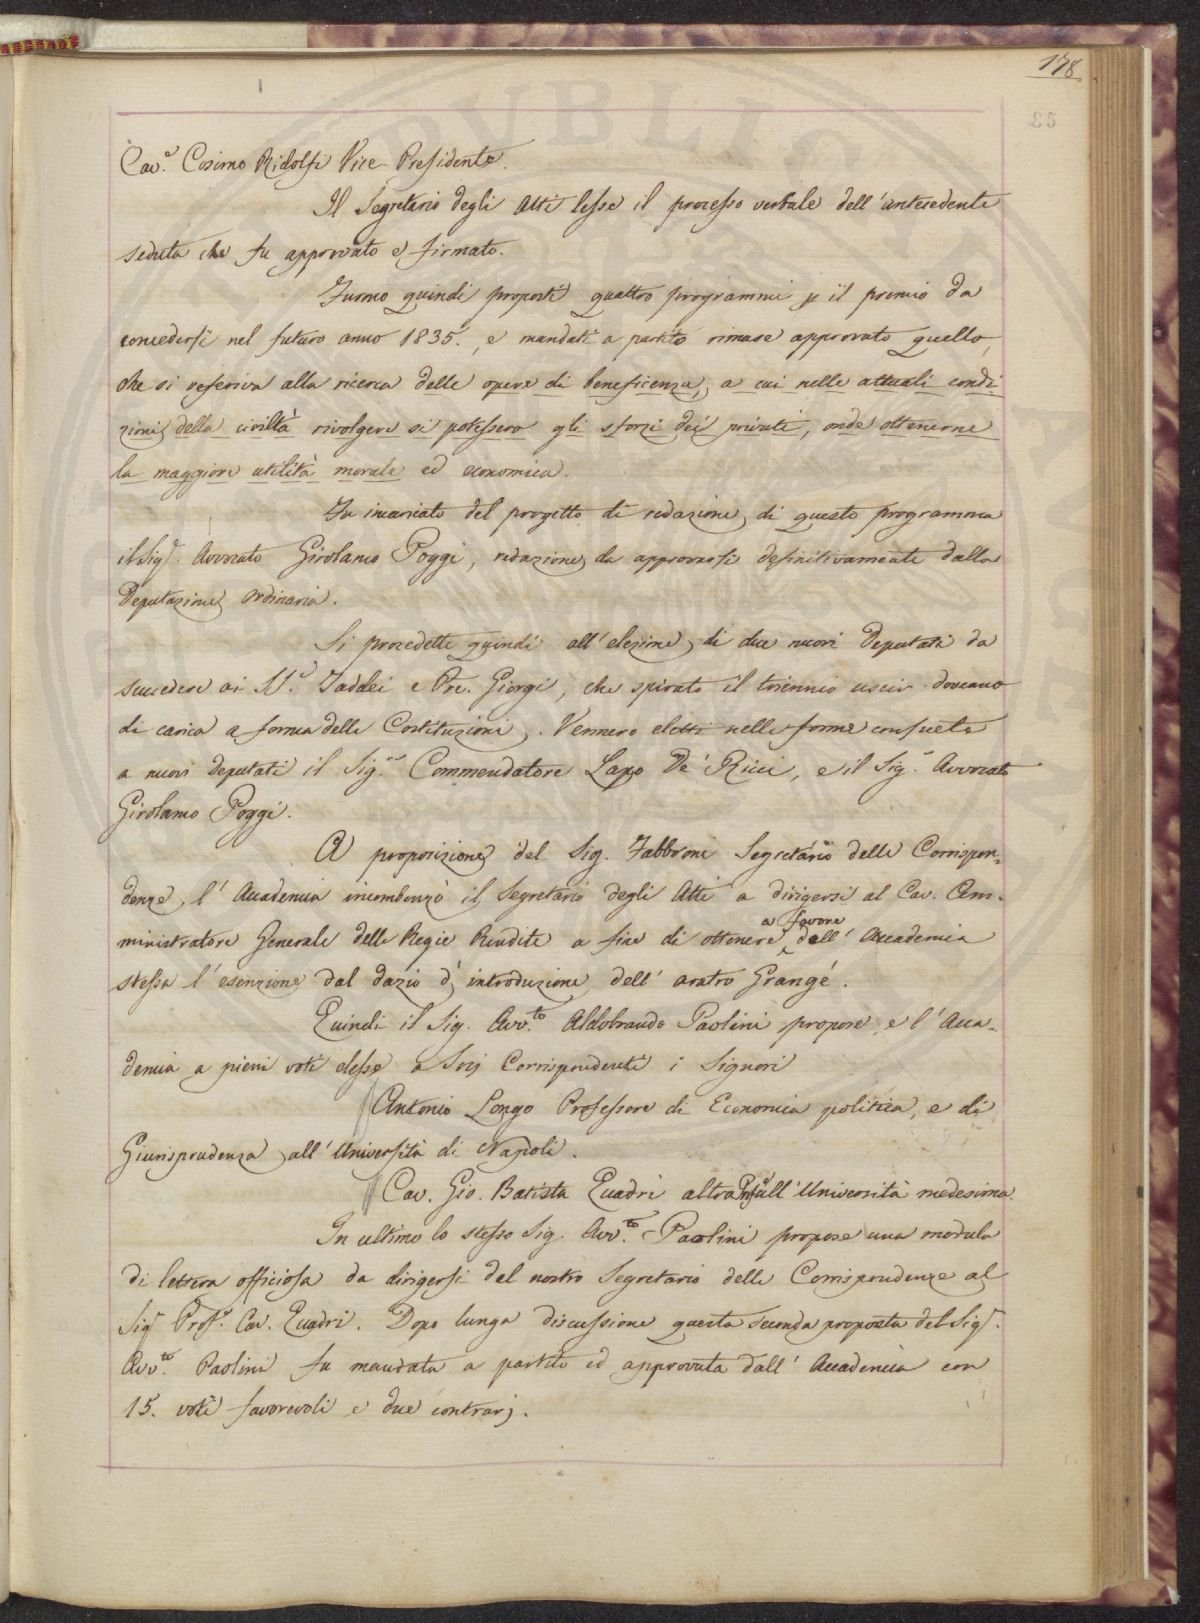 178
Cav.e Cosimo Ridolfi Vice-Presidente.
Il Segretario degli Atti lesse il processo verbale dell'antecedente
seduta che fu approvato e firmato.
Furono quindi proposti quattro programmi p il premio da
concedersi nel futuro anno 1835., e mandati a partito rimase approvato quello,
che si referiva alla ricerca delle opere di beneficenza, a cui nelle attuali condi-
zioni della civiltà rivolgere si potessero gli sforzi dei privati, onde ottenerne
la maggiore utilità morale ed economica.
Fu incaricato del progetto di redazione di questo programma
il Sigr. Avvocato Girolamo Poggi, redazione da approvarsi definitivamente dalla
Deputazione Ordinaria.
Si procedette quindi all'elezione di due nuovi Deputati da
succedere ai SS.i Taddei e Pre. Giorgi, che spirato il triennio uscir doveano
di carica a forma delle Costituzioni. Vennero eletti nelle forme consuete
a nuovi deputati il Sig.r Commendatore Lapo De' Ricci, e il Sig.r Avvocato
Girolamo Poggi.
A proposizione del Sig. Fabbroni Segretario delle Corrispon-
denze, l'Accademia incombenzò il Segretario degli Atti a dirigersi al Cav. Am-
ministratore Generale delle Regie Rendite a fine di ottenere a favore dell'Accademia
stessa l'esenzione dal dazio d'introduzione dell'aratro Grangé.
Quindi il Sig. Avv.to Aldobrando Paolini propose, e l'Acca-
demia a pieni voti elesse a Socj Corrispondenti i Signori
Antonio Longo Professore di Economia politica, e di
Giurisprudenza all'Università di Napoli.
Cav. Gio. Batista Quadri altro Profe all'Università medesima.
In ultimo lo stesso Sig. Avv.to Paolini propose una modula
di lettera officiosa da dirigersi dal nostro Segretario delle Corrispondenze al
Sigr Prof.e Cav. Quadri. Dopo lunga discussione questa seconda proposta del Sigr.
Avv.to Paolini fu mandata a partito ed approvata dall'Accademia con
15. voti favorevoli e due contrarj.